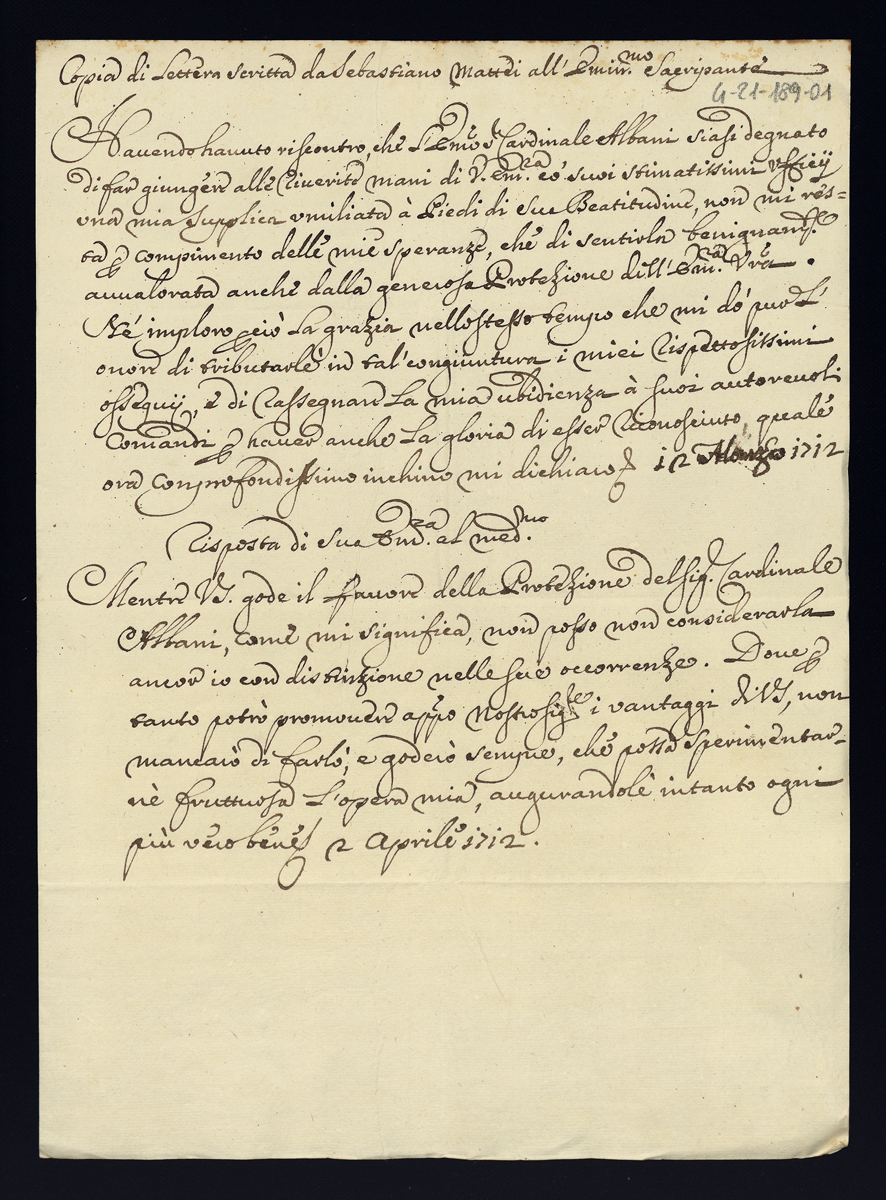 Copia di Lettera scritta da Sebastiano Mattei all' Emin.mo Sacripante
G-21-189-01
Havendo havuto riscontro, che l'Emo S. Cardinale Albani siasi degnato
di far giungere alle riverite mani di V. Em.za co' suoi stimatissimi ufficij
una mia supplica umiliata à Piedi di Sua Beatitudine, non mi res=
ta p compimento delle mie speranze, che di sentirla benignam.te
avvalorata anche dalla generosa Protezione dell' Em.za Vra.
Né imploro pciò la grazia nello stesso tempo che mi dó pur l'
onore di tributarle in tal' congiuntura i miei rispettosissimi
ossequij, e di rassegnare la mia ubidienza à suoi autorevoli
Comandi p haver anche la gloria di esser riconosciuto, quale
ora con profondissimo inchino mi dichiaro 12 Marzo 1712
Risposta di Sua Em.za al med.mo
Mentre VS. gode il favore della Protezione del Sig. Cardinale
Albani, come mi significa, non posso non considerarla
ancor io con distinzione nelle sue occorrenze. Dove p
tanto potrò promovere appo Nostro Sig.re i vantaggi di VS, non
mancarò di farlo, e goderò sempre, che possa sperimentar=
ne fruttuosa l'opera mia, augurandole intanto ogni
più vero bene 2 Aprile 1712.